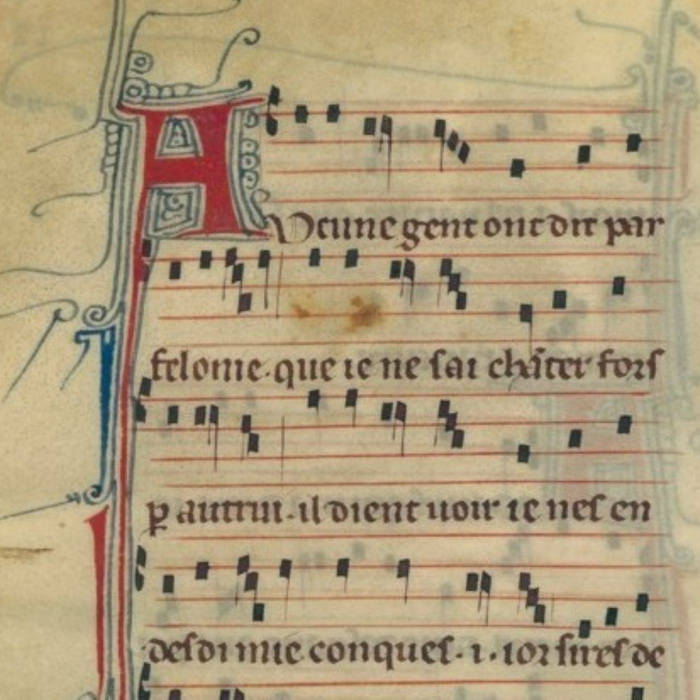 Aucune gent ont dit par
felonie. que ie ne sai chãter fors
ꝑ autrui. il dient uoir ie nes en
desdi mie conques. i. ior sires de